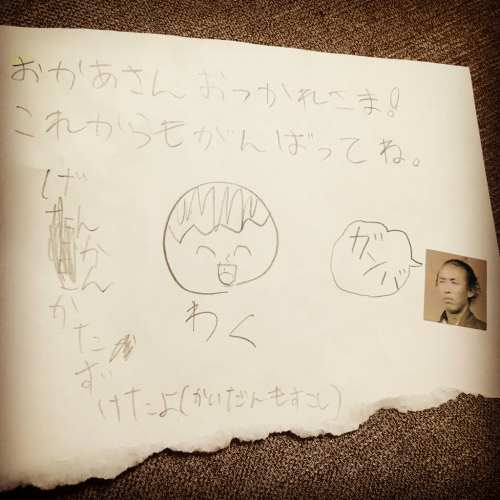 おかあさん おつかれさま!
これからもがんばってね。
げんかん
かたず
けたよ(かいだんもすこし)
わく
ガンバ